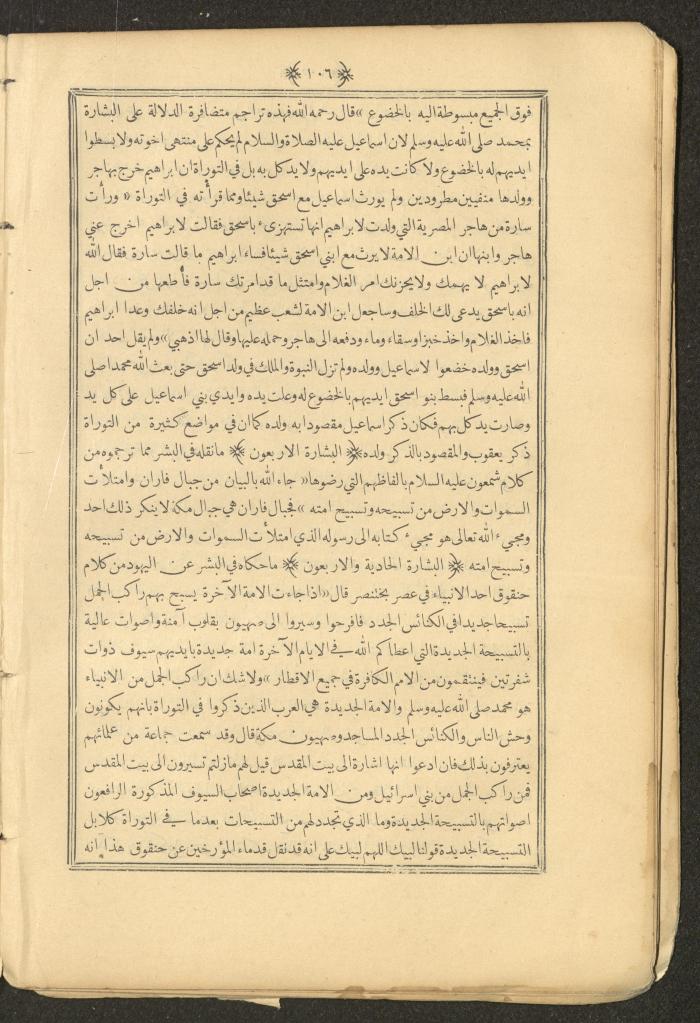 ﴿١٠٦﴾
فوق الجميع مبسوطة اليه بالخضوع » قال رحمه الله فهذه تراجم متضافرة الدلالة على البشارة
بمحمد صلى الله عليه وسلم لان اسماعيل عليه الصلاة والسلام لم يحكم على منتهى اخوته ولا بسطوا
ايديهم له بالخضوع ولا كانت يده على ايديهم ولا يد كل به بل في التوراة ان ابراهيم خرج بهاجر
وولدها منفيين مطرودين ولم يورث اسماعيل مع اسحق شيئا ومما قرأته في التوراة « ورأت
سارة من هاجر المصرية التي ولدت لابراهيم انها تستهزىء باسحق فقالت لابراهيم اخرج عني
هاجر وابنها ان ابن الامة لا يرث مع ابني اسحق شيئا فساء ابراهيم ما قالت سارة فقال الله
لابراهيم لا يهمك ولا يحزنك امر الغلام وامتثل ما قد امرتك سارة فأطعها من اجل
انه باسحق يدعى لك الخلف وساجعل ابن الامة لشعب عظيم من اجل انه خلفك وغدا ابراهيم
فاخذ الغلام واخذ خبزا وسقاء وماء ودفعه الى هاجر وحمله عليها وقال لها اذهبي » ولم يقل احد ان
اسحق وولده خضعوا لاسماعيل وولده ولم تزل النبوة والملك في ولد اسحق حتى بعث الله محمدا صلى
الله عليه وسلم فبسط بنو اسحق ايديهم بالخضوع له وعلت يده وايدي بني اسماعيل على كل يد
وصارت يد كل بهم فكان ذكر اسماعيل مقصودا به ولده كما ان في مواضع كثيرة من التوراة
ذكر يعقوب والمقصود بالذكر ولده ﴿ البشارة الاربعون ﴾ ما نقله في البشر مما ترجموه من
كلام شمعون عليه السلام بالفاظهم التي رضوها « جاء الله بالبيان من جبال فاران وامتلأت
السموات والارض من تسبيحه وتسبيح امته » فجبال فاران هي جبال مكة لا ينكر ذلك احد
ومجيء الله تعالى هو مجيء كتابه الى رسوله الذي امتلأت السموات والارض من تسبيحه
وتسبيح امته ﴿ البشارة الحادية والاربعون ﴾ ما حكاه في البشر عن اليهود من كلام
حنقوق احد الانبياء في عصر بختنصر قال « اذا جاءت الامة الآخرة يسبح بهم راكب الجمل
تسبيحا جديدا في الكنائس الجدد فافرحوا وسيروا الى صهيون بقلوب آمنة واصوات عالية
بالتسبيحة الجديدة التي اعطاكم الله في الايام الآخرة امة جديدة بايديهم سيوف ذوات
شفرتين فينتقمون من الامم الكافرة في جميع الاقطار » ولا شك ان راكب الجمل من الانبياء
هو محمد صلى الله عليه وسلم والامة الجديدة هي العرب الذين ذكروا في التوراة بانهم يكونون
وحش الناس والكنائس الجدد المساجد وصهيون مكة قال وقد سمعت جماعة من علمائهم
يعترفون بذلك فان ادعوا انها اشارة الى بيت المقدس قيل لهم ما زلتم تسيرون الى بيت المقدس
فمن راكب الجمل من بني اسرائيل ومن الامة الجديدة اصحاب السيوف المذكورة الرافعون
اصواتهم بالتسبيحة الجديدة وما الذي تجدد لهم من التسبيحات بعد ما في التوراة كلا بل
التسبيحة الجديدة قولنا لبيك اللهم لبيك على انه قد نقل قدماء المؤرخين عن حنقوق هذا انه